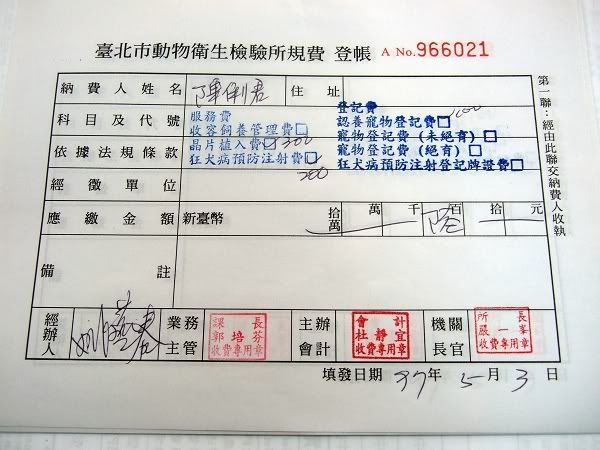 臺北市動物衛生檢驗所規費 登帳 A No.966021
納費人姓名 陳俐君 住址
科目及代號
服務費
收容飼養管理費□
晶片植入費☑ 300
狂犬病預防注射費☑ 200
登記費
認養寵物登記費☑ 100
寵物登記費(未絕育)□
寵物登記費(絕育)□
狂犬病預防注射登記牌證費□
依據法規條款
經徵單位
應繳金額 新臺幣 拾萬 萬 千 陸 百 拾 元
備註
經辦人
業務主管 課長 郭培芬 收費專用章
主辦會計 會計 杜靜宜 收費專用章
機關長官 所長 嚴一峯 收費專用章
填發日期 97年 5月 3日
第一聯:經由此聯交納費人收執